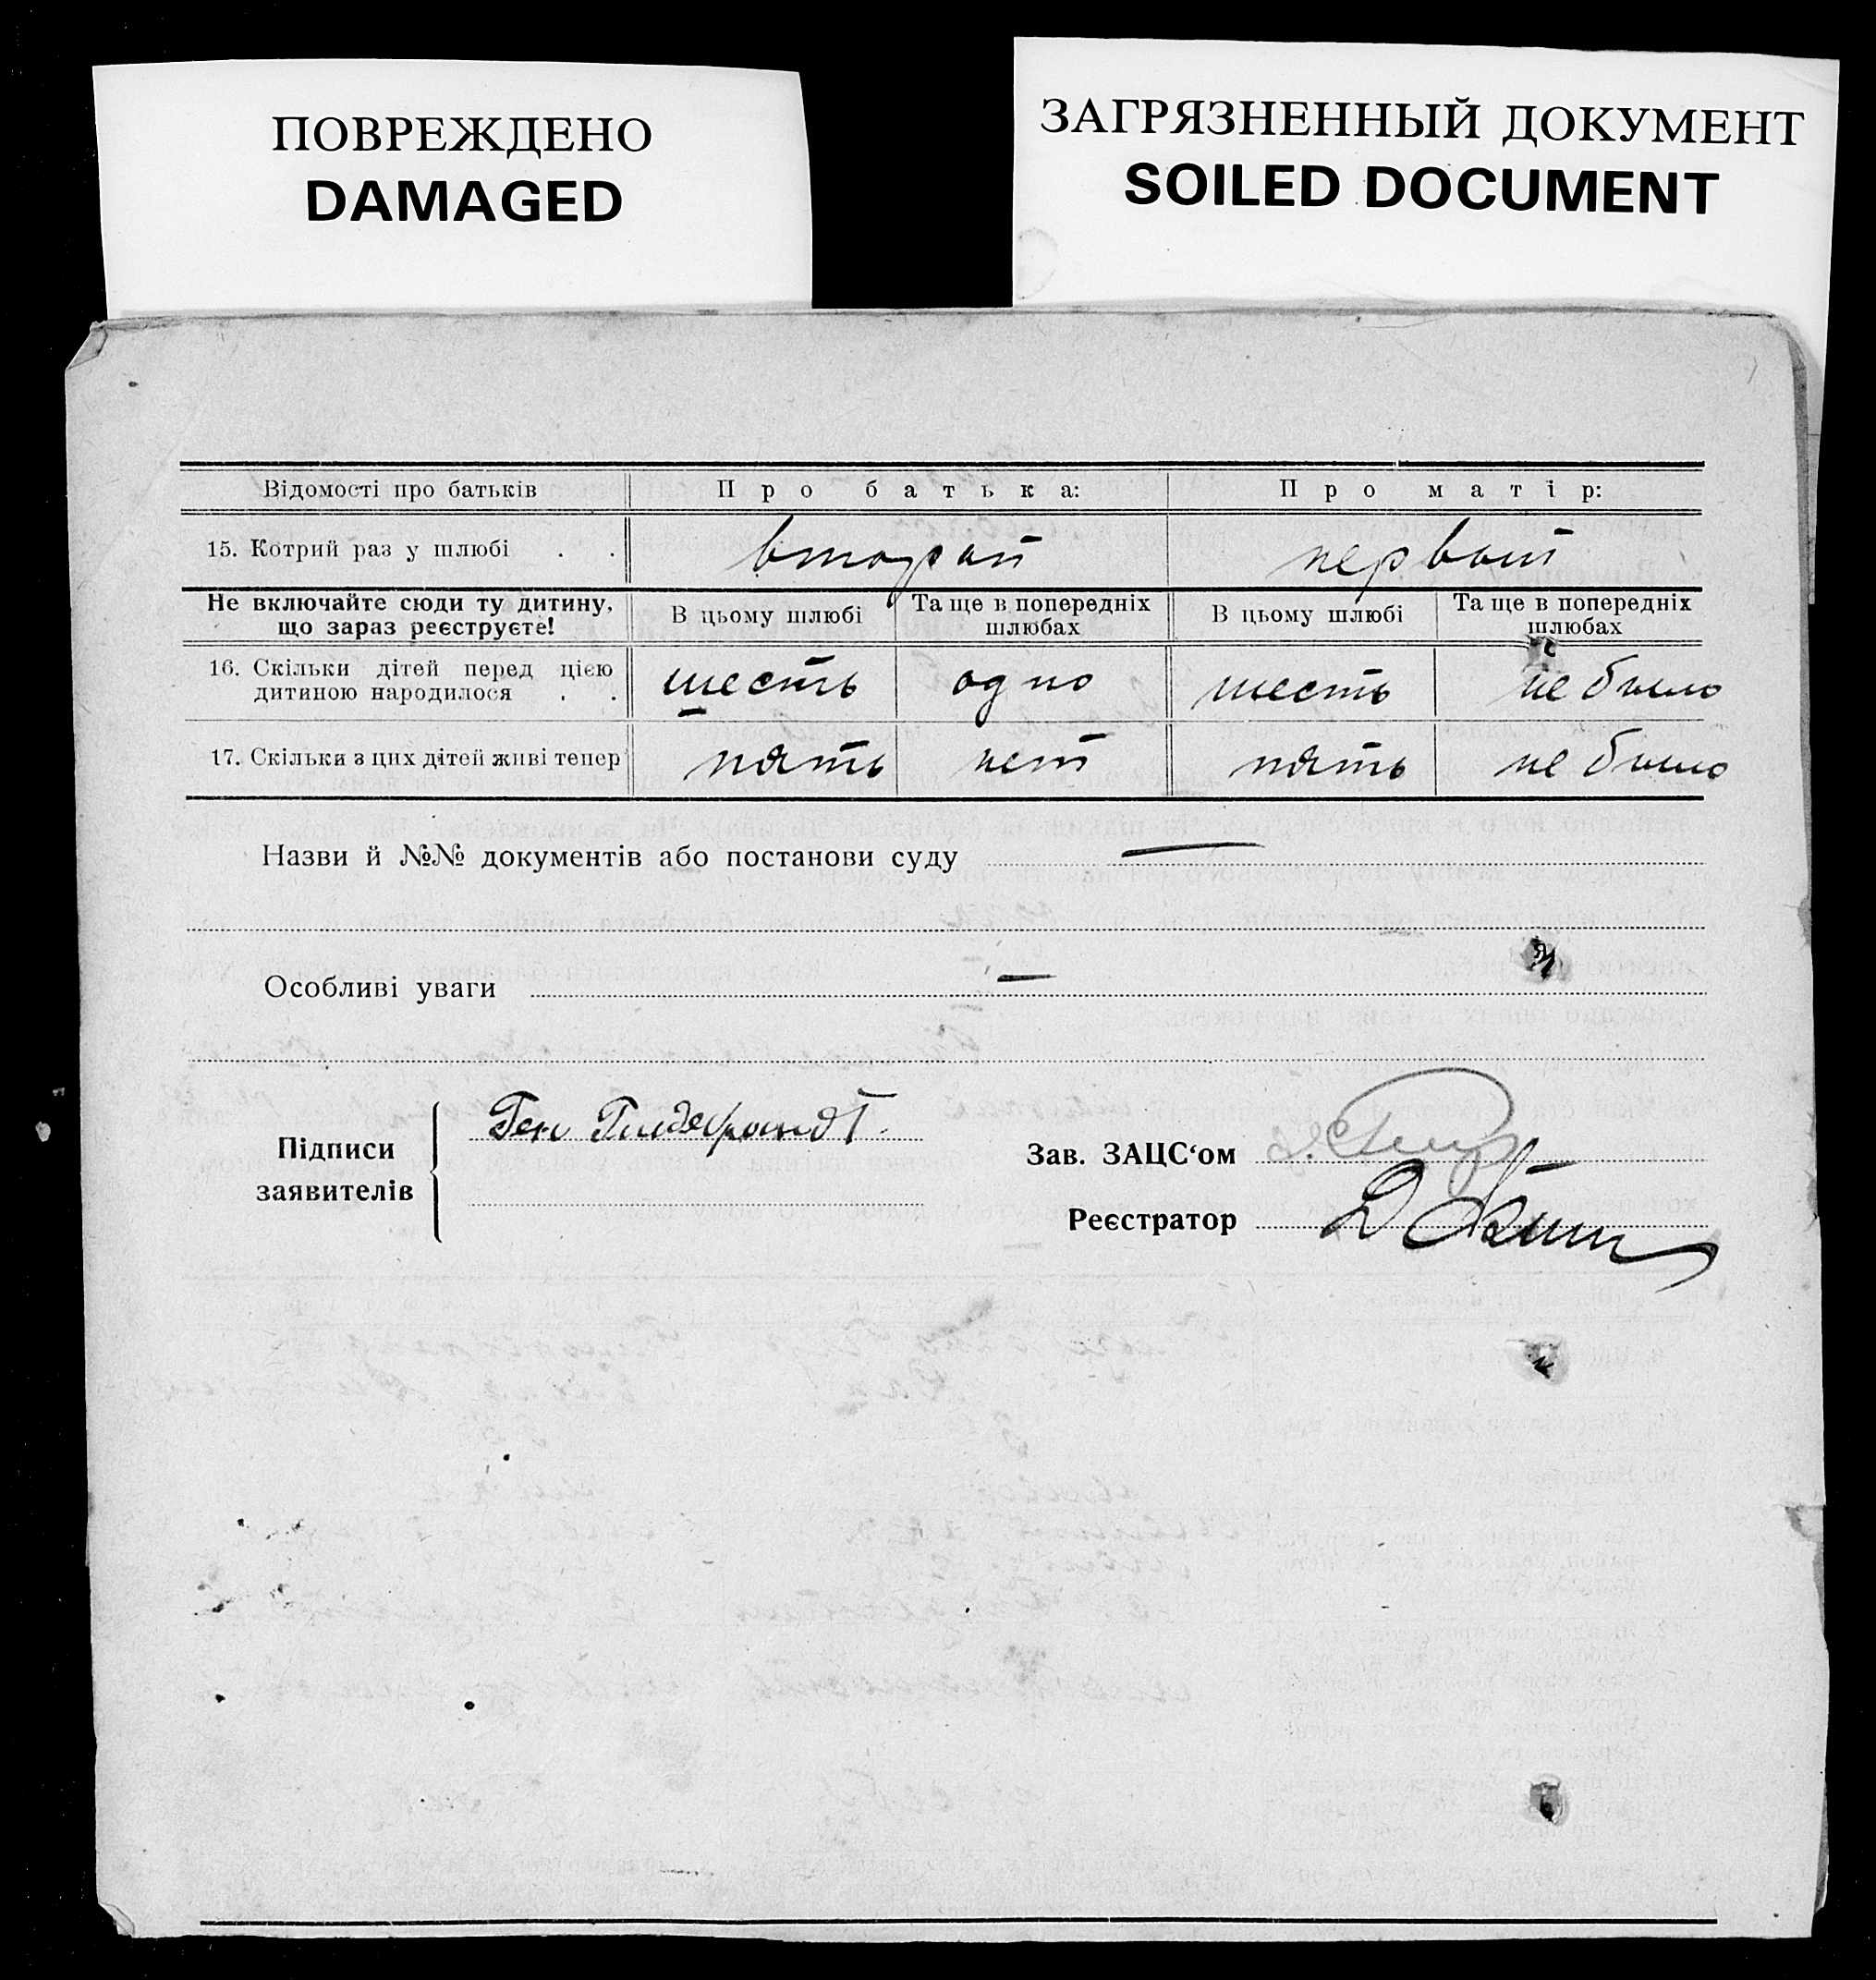 ПОВРЕЖДЕНО
DAMAGED
ЗАГРЯЗНЕННЫЙ ДОКУМЕНТ
SOILED DOCUMENT
Відомості про батьків Про батька: Про матір:
15. Котрий раз у шлюбі . . второй первый
Не включайте сюди ту дитину, що зараз реєструєте! В цьому шлюбі Та ще в попередніх шлюбах В цьому шлюбі Та ще в попередніх шлюбах
16. Скільки дітей перед цією дитиною народилося . . шесть одно шесть не было
17. Скільки з цих дітей живі тепер пять нет пять не было
Назви й №№ документів або постанови суду —
Особливі уваги —
Підписи заявителів
Зав. ЗАЦС‘ом
Реєстратор